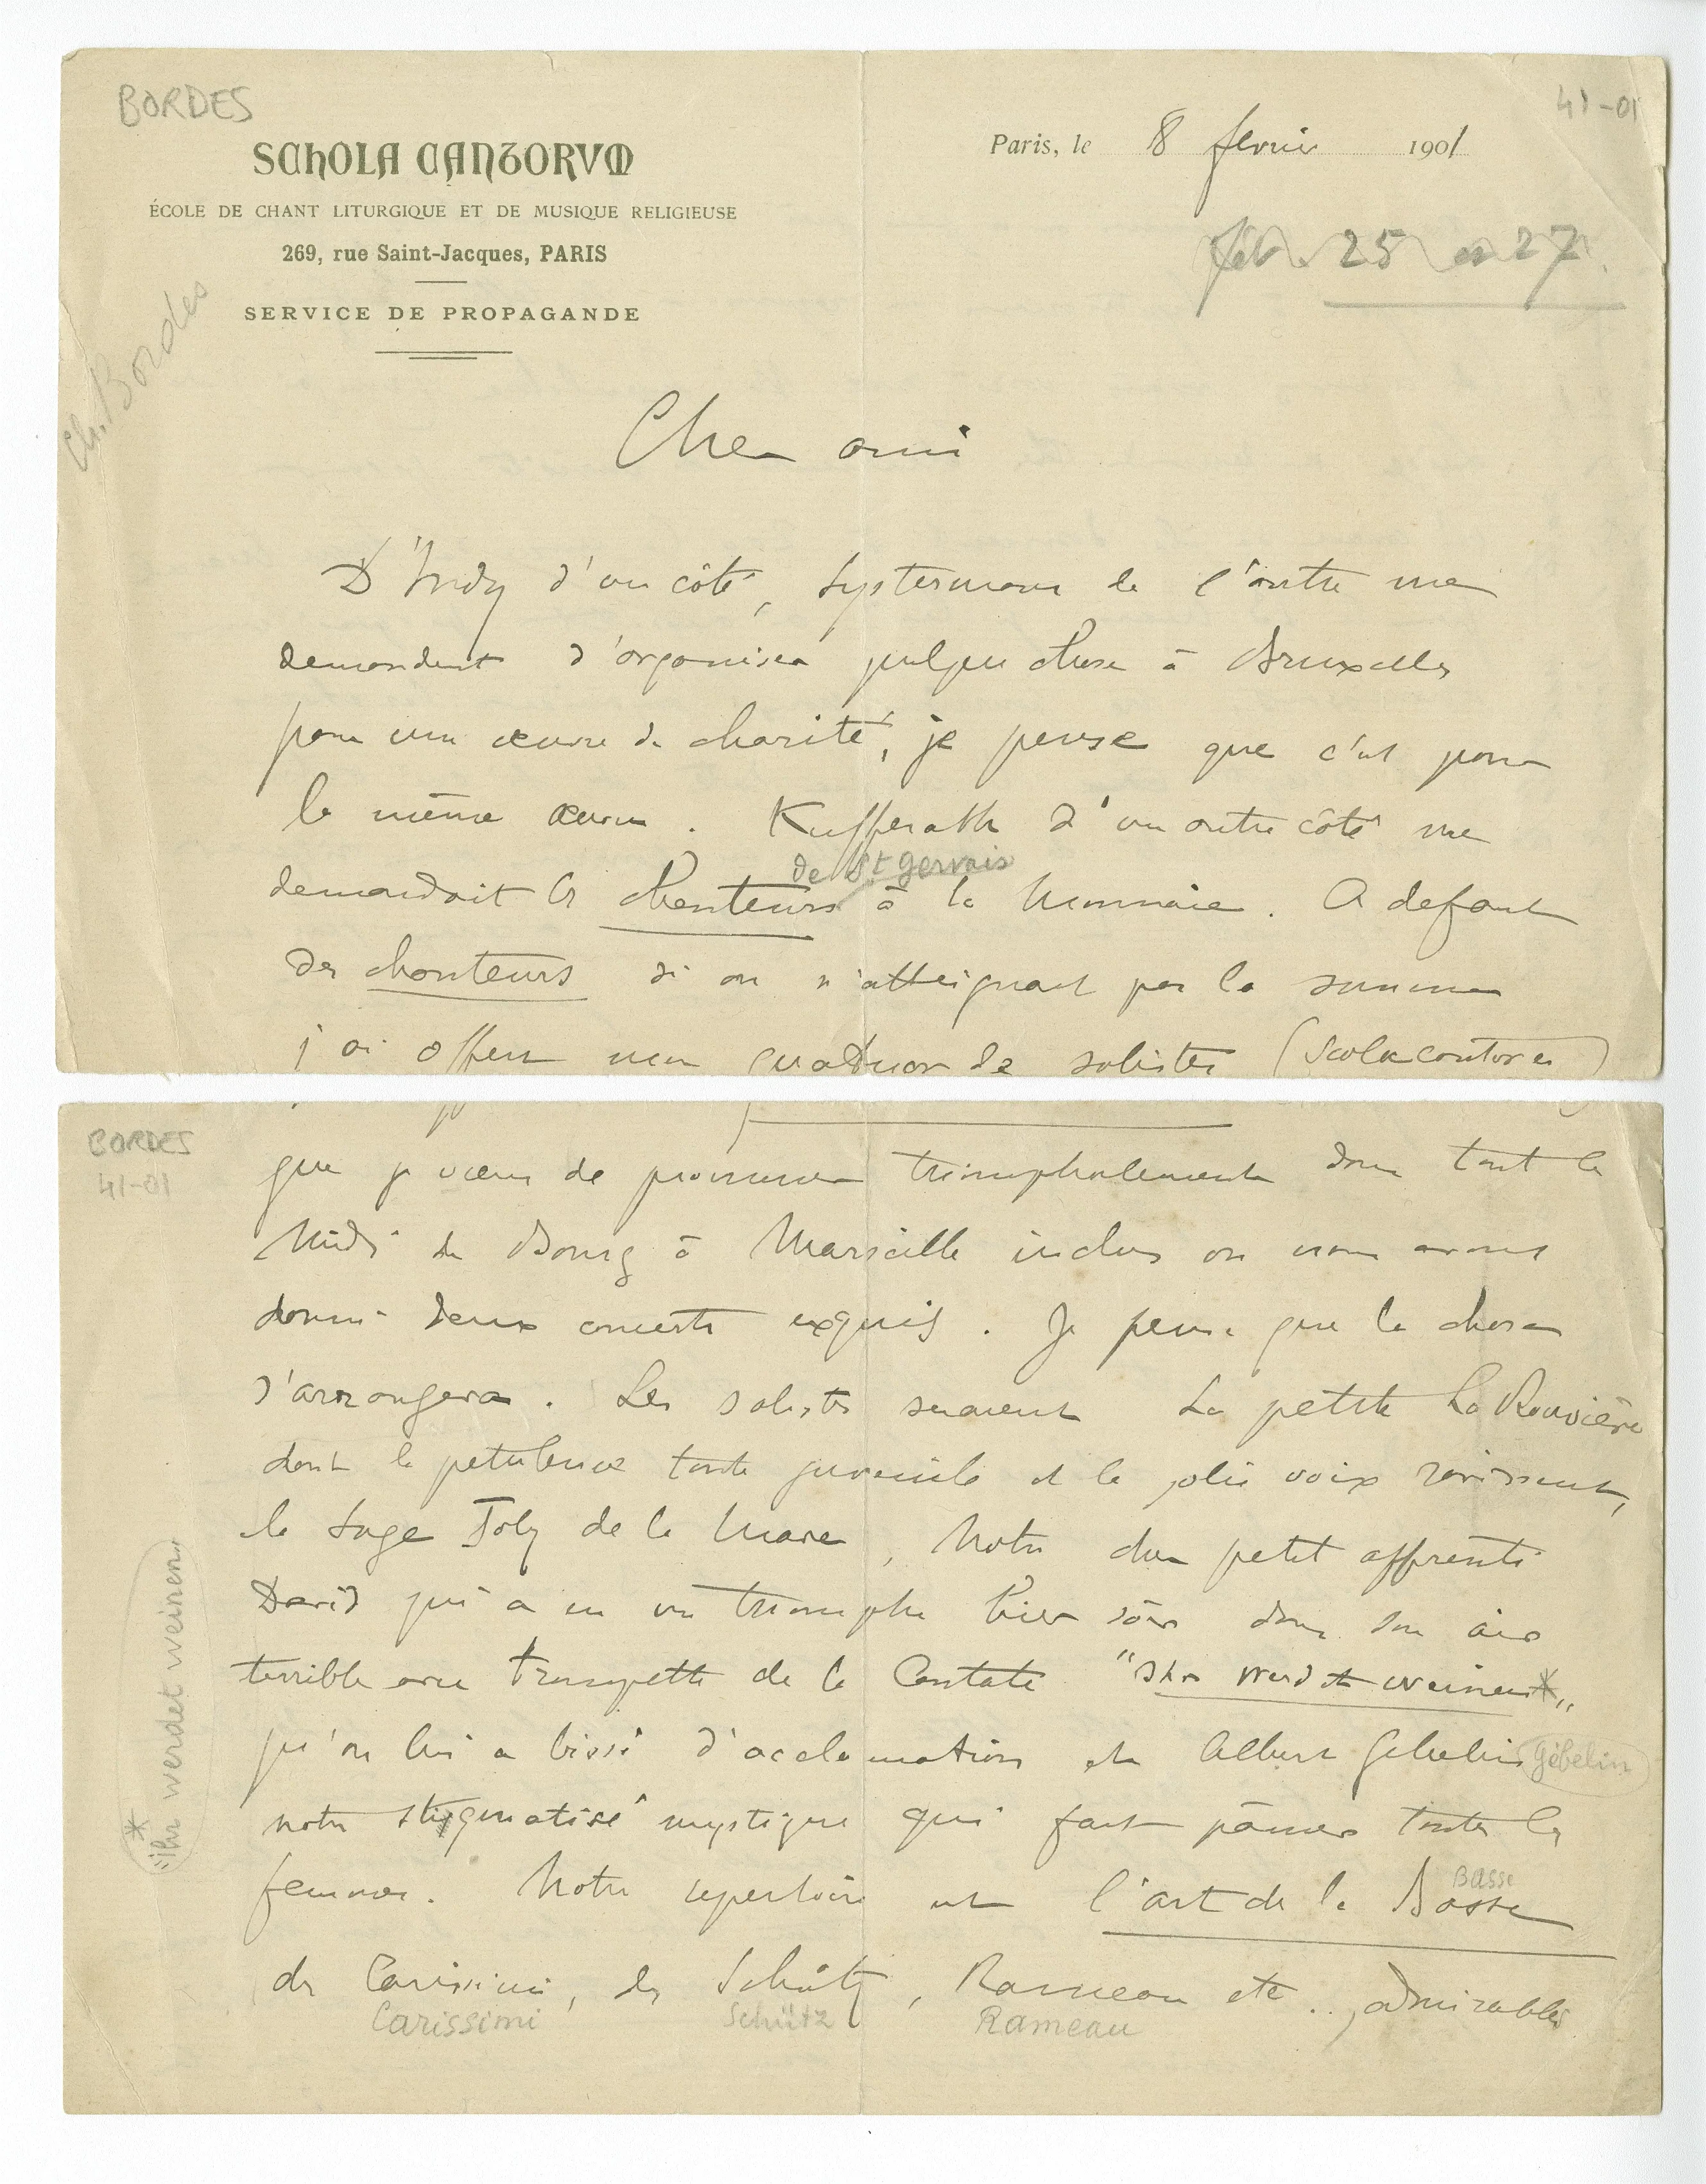 BORDES
41-01
SCHOLA CANTORVM
Paris, le 8 fevrier 1901
ÉCOLE DE CHANT LITURGIQUE ET DE MUSIQUE RELIGIEUSE
269, rue Saint-Jacques, PARIS
25 27
SERVICE DE PROPAGANDE
Ch. Bordes
Cher ami
D'Indy d'un côté, Systermans de l'autre me
demandent d'organiser quelque chose à Bruxelles
pour une œuvre de charité, je pense que c'est pour
la même œuvre. Kufferath d'un autre côté me
de St gervais
demandait les chanteurs à la Monnaie. A defaut
des chanteurs si on n'atteignait pas la somme
j'ai offert mon quatuor de solistes (Scola cantores)
BORDES
41-01
que je viens de promener triomphalement dans tout le
Midi de Bourg à Marseille inclus où nous avons
donné deux concerts exquis. Je pense que la chose
s'arrangera. Les solistes seraient La petite La Rouvière
dont la petulence toute juvenile et la jolie voix ravissent,
la sage Joly de la Mare, Notre cher petit apprenti
David qui a eu un triomphe hier soir dans son air
terrible avec trompette de la Cantate "Ihr werdet weinen*"
qu'on lui a bissé d'acclamations et Albert Gebelin Gébelin
notre stigmatisé mystique qui fait pâmer toutes les
femmes. Notre repertoire est l'art de la Basse
Basse
de Carissimi, de Schütz, Rameau etc.., admirables
Carissimi Schütz Rameau
* "ihr werdet weinen"